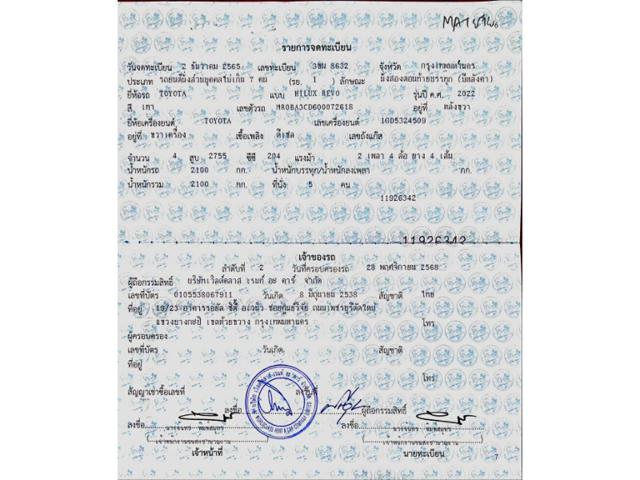 รายการจดทะเบียน
วันจดทะเบียน 2 ธันวาคม 2565 เลขทะเบียน 3ฒษ 8632 จังหวัด กรุงเทพมหานคร
ประเภท รถยนต์นั่งส่วนบุคคลไม่เกิน 7 คน (รย. 1 ) ลักษณะ นั่งสองตอนท้ายบรรทุก (มีหลังคา)
ยี่ห้อรถ TOYOTA แบบ HILUX REVO รุ่นปี ค.ศ. 2022
สี เทา เลขตัวรถ MR0BA3CD600072618 อยู่ที่ หลังขวา
ยี่ห้อเครื่องยนต์ TOYOTA เลขเครื่องยนต์ 1GD5324509
อยู่ที่ ขวาเครื่อง เชื้อเพลิง ดีเซล เลขถังแก๊ส
จำนวน 4 สูบ 2755 ซีซี 204 แรงม้า 2 เพลา 4 ล้อ ยาง 4 เส้น
น้ำหนักรถ 2100 กก. น้ำหนักบรรทุก/น้ำหนักลงเพลา กก.
น้ำหนักรวม 2100 กก. ที่นั่ง 5 คน
11926342
11926342
เจ้าของรถ
ลำดับที่ 2 วันที่ครอบครองรถ 28 พฤศจิกายน 2568
ผู้ถือกรรมสิทธิ์ บริษัท เวิลด์คลาส เรนท์ อะ คาร์ จำกัด
เลขที่บัตร 0105538067911 วันเกิด 8 มิถุนายน 2538 สัญชาติ ไทย
ที่อยู่ 19/23 อาคารรอยัล ซิตี้ อเวนิว ซอยศูนย์วิจัย ถนนเพชรบุรีตัดใหม่
แขวงบางกะปิ เขตห้วยขวาง กรุงเทพมหานคร โทร
ผู้ครอบครอง
เลขที่บัตร วันเกิด สัญชาติ
ที่อยู่
โทร
สัญญาเช่าซื้อเลขที่ ลงวันที่
ลงชื่อ ผู้ถือกรรมสิทธิ์
ลงชื่อ ลงชื่อ
เจ้าหน้าที่ นายทะเบียน